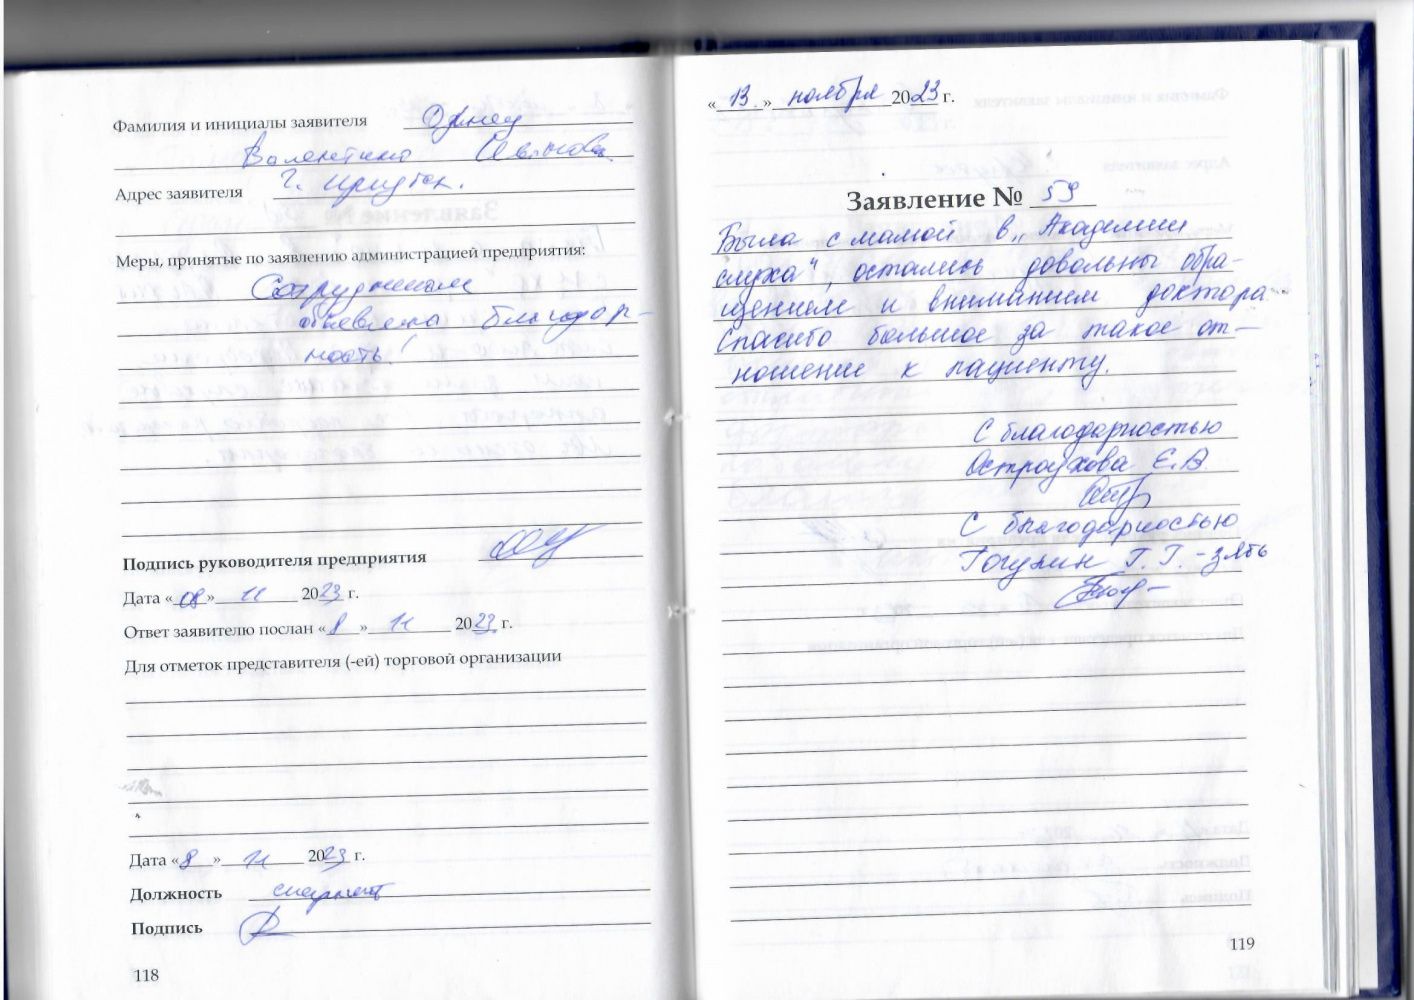 Фамилия и инициалы заявителя
Валентина Ивановна
Адрес заявителя г. Иркутск.
Меры, принятые по заявлению администрацией предприятия:
Сотрудникам
объявлена благодар-
ность!
Подпись руководителя предприятия
Дата «08» 11 2023 г.
Ответ заявителю послан «8» 11 2023 г.
Для отметок представителя (-ей) торговой организации
Дата «8» 11 2023 г.
Должность специалист
Подпись
118
«13» ноября 2023 г.
Заявление № 59
Была с мамой в „Академии
слуха“, остались довольны обра-
щением и вниманием доктора
Спасибо большое за такое от-
ношение к пациенту.
С благодарностью
Остроухова Е.В.
С благодарностью
Гогунин Г. Г. - зять
119